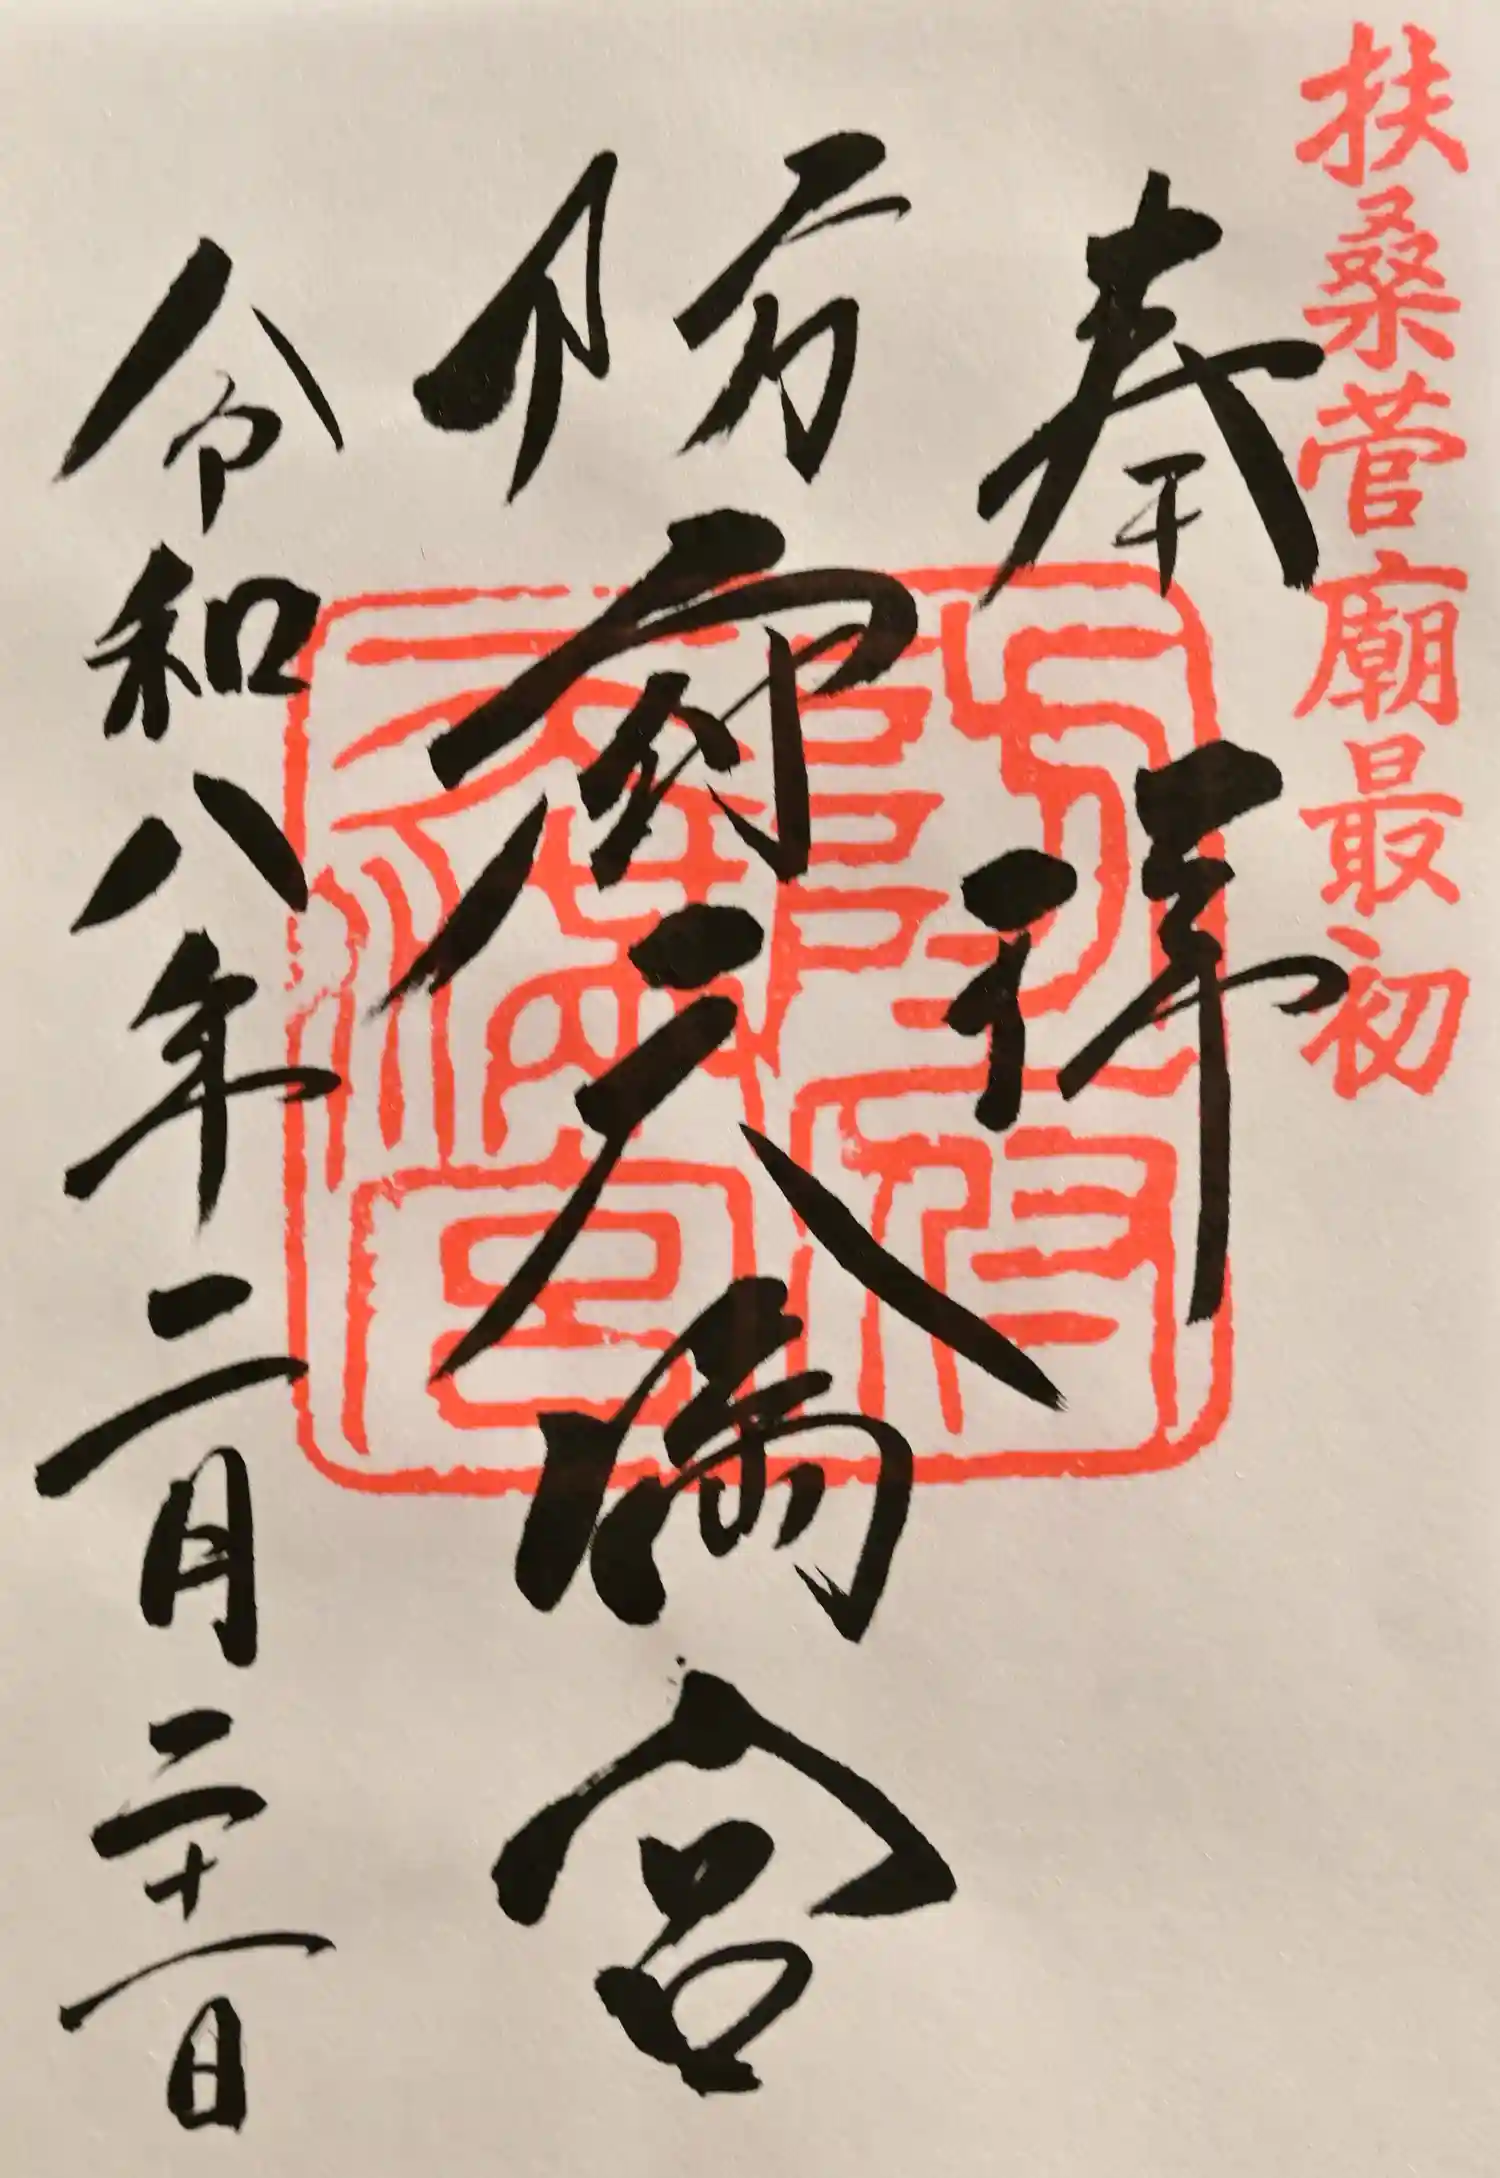 扶桑菅廟最初
奉拝
防府天満宮
防府天滿宮
令和八年二月二十一日